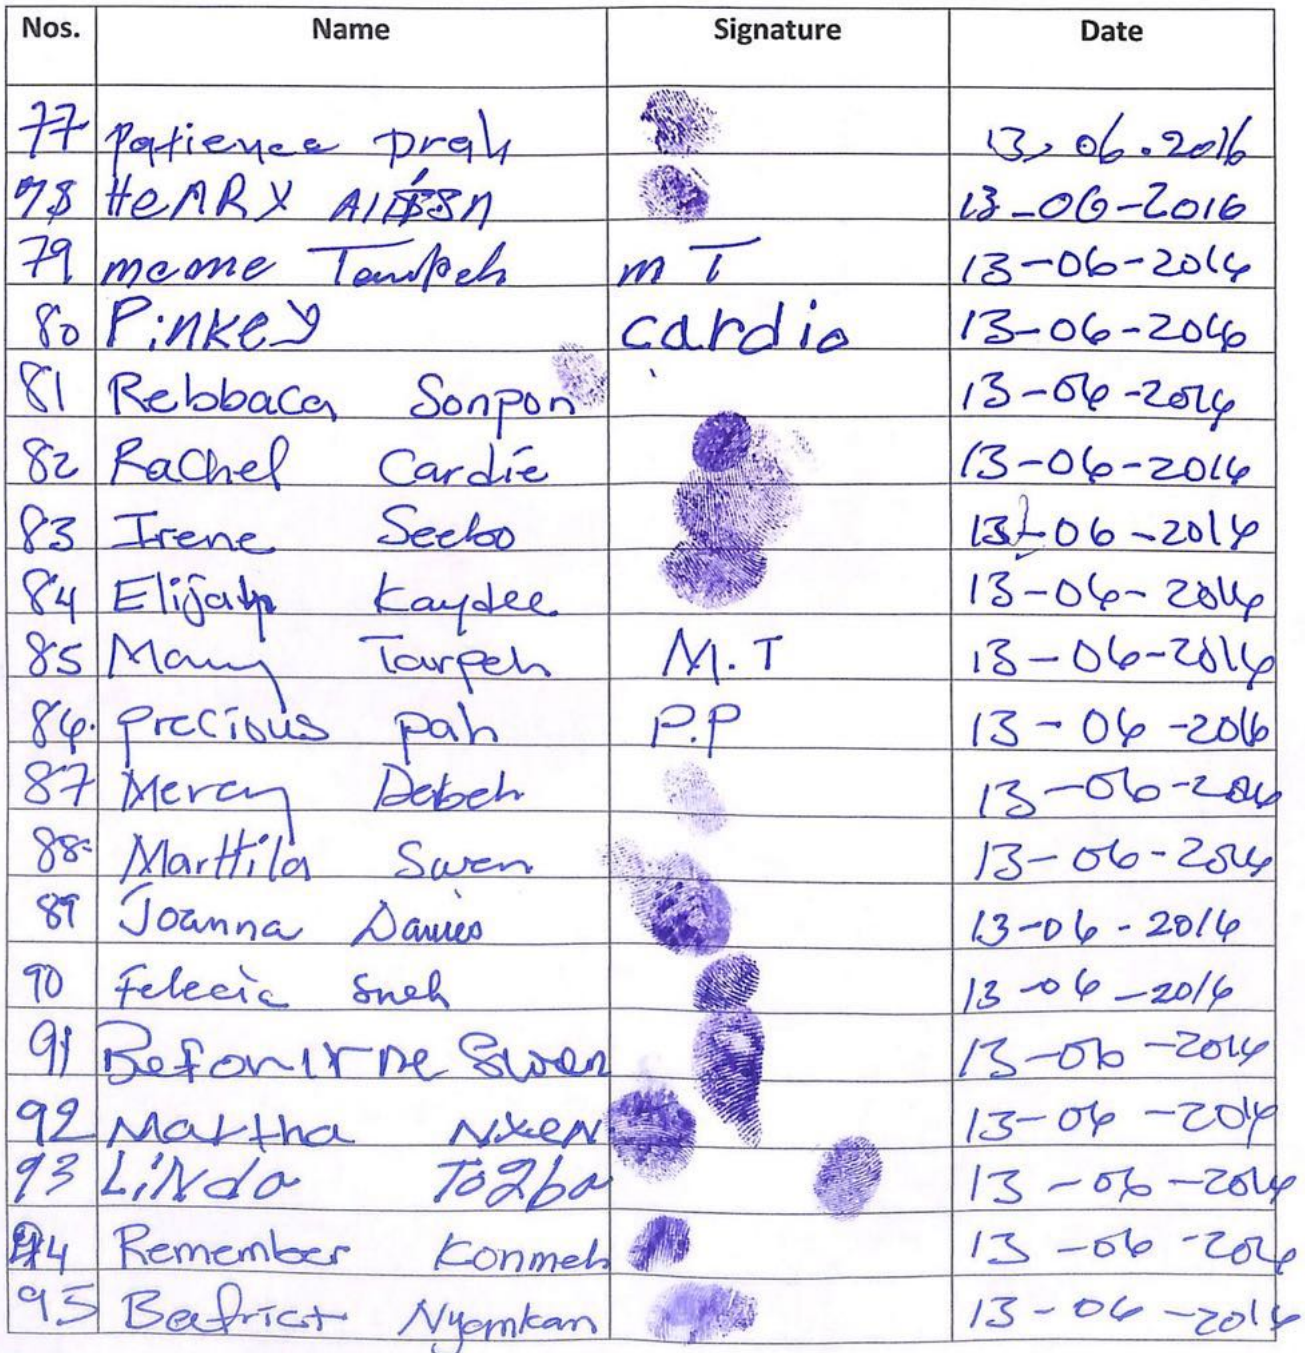 Nos. Name Signature Date
77 Patience Drah 13, 06.2016
78 HeARX 13-06-2016
79 meme Tarpeh m T 13-06-2016
80 PinKey cardio 13-06-2016
81 Rebbaca Sonpon 13-06-2016
82 Rachel Cardie 13-06-2016
83 Irene Seebo 13-06-2016
84 Elijah Kaydee 13-06-2016
85 Mary Tarpeh M.T 13-06-2016
86. precious pah P.P 13-06-2016
87 Mercy Debeh 13-06-2016
88- Marttila Swen 13-06-2016
89 Joanna Davies 13-06-2016
90 Felecia Sneh 13-06-2016
91 Swen 13-06-2016
92 Martha NXeN 13-06-2016
93 LiNda Togba 13-06-2016
94 Remember Konmeh 13-06-2016
95 Beatrict Nyemkan 13-06-2016